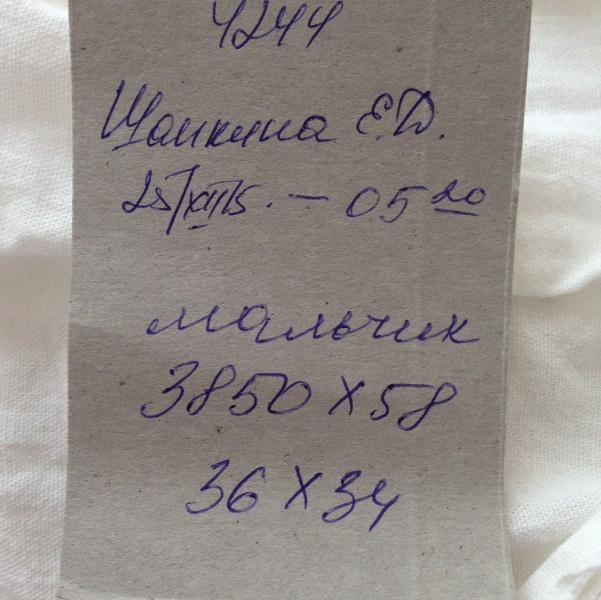 4244
Щапкина Е.Д.
25/XII/15. — 05 20
мальчик
3850 х 58
36 х 34